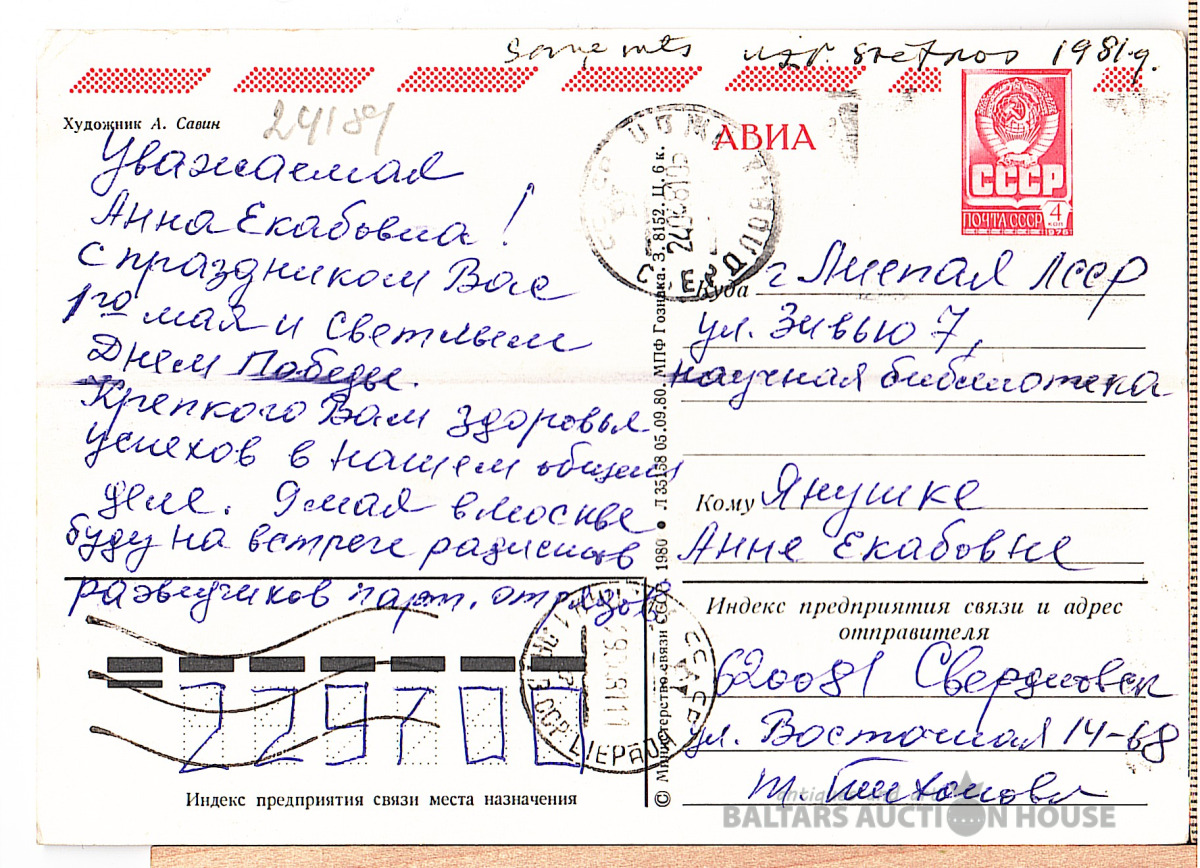 1981.g.
Художник А. Савин
24/81
АВИА
СССР
ПОЧТА СССР 4 КОП
1978
Уважаемая
Анна Екабовна!
С праздником Вас
1го мая и светлым
Днем Победы.
Крепкого Вам здоровья
успехов в нашем общем
деле. 9 мая в Москве
буду на встрече радистов
разведчиков парт. отрядов
Куда г Лиепая ЛССР
ул. Зивью 7,
научная библиотека
Кому Янушке
Анне Екабовне
Индекс предприятия связи и адрес
отправителя
620081 Свердловск
ул. Восточная 14-68
т. Тихонова
229700
Индекс предприятия связи места назначения
© Министерство связи СССР, 1980 ● Л 35158 05.09.80 МПФ Гознака. З. 8152. Ц. 6 к.
LIEPĀJA
antiques and art
BALTARS AUCTION HOUSE